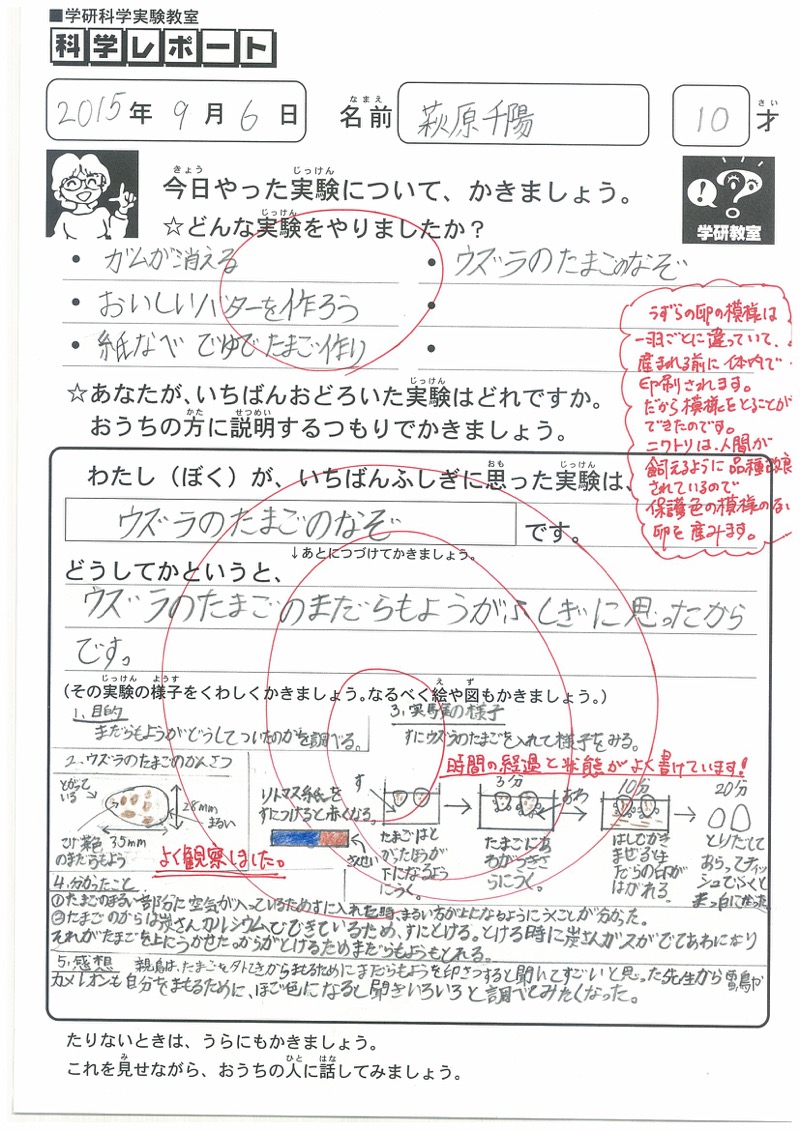 ■学研科学実験教室
科学レポート
2015年 9月 6日
なまえ
名前 萩原千陽
10 さい
才
きょう じっけん
今日やった実験について、かきましょう。
じっけん
☆どんな実験をやりましたか？
学研教室
• ガムが消える
• おいしいバターを作ろう
• 紙なべ でゆでたまご作り
• ウズラのたまごのなぞ
•
•
うずらの卵の模様は
一羽ごとに違っていて、
産まれる前に体内で
印刷されます。
だから模様をとることが
できたのです。
ニワトリは、人間が
飼えるように品種改良
されているので
保護色の模様のない
卵を産みます。
じっけん
☆あなたが、いちばんおどろいた実験はどれですか。
かた せつめい
おうちの方に説明するつもりでかきましょう。
おも じっけん
わたし（ぼく）が、いちばんふしぎに思った実験は、
ウズラのたまごのなぞ
です。
↓あとにつづけてかきましょう。
どうしてかというと、
ウズラのたまごのまだらもようがふしぎに思ったから
です。
じっけん ようす え ず
（その実験の様子をくわしくかきましょう。なるべく絵や図もかきましょう。）
1、目的
まだらもようがどうしてついたのかを調べる。
2、ウズラのたまごのかんさつ
とがって
いる
28mm
まるい
35mm
のまだらもよう
よく観察しました。
3、実験の様子
すにウズラのたまごを入れて様子をみる。
時間の経過と状態がよく書けています！
リトマス紙を
すにつけると赤くなる。
す
たまごはと
がったほうが
下になるよう
にうく。
3分
あわ
たまごにあ
わがつき
うにうく。
10分
はしでかき
まぜると
だらの印が
はがれる。
20分
とりだして
あらってティッ
シュでふくと
まっ白になった
4、分かったこと
①たまごのまるい部分に空気が入っているためすに入れた時、まるい方が上になるようにうくことが分かった。
②たまごのからは炭さんカルシウムでできているため、すにとける。とける時に炭さんガスがでてあわになり
それがたまごを上にうかせた。からがとけるためまだらもようもとれる。
5、感想 親鳥は、たまごを外てきからまもるためにまだらもようを印さつすると聞いてすごいと思った先生から雷鳥や
カメレオンも自分をまもるために、ほご色になると聞きいろいろと調べてみたくなった。
たりないときは、うらにもかきましょう。
み ひと はな
これを見せながら、おうちの人に話してみましょう。